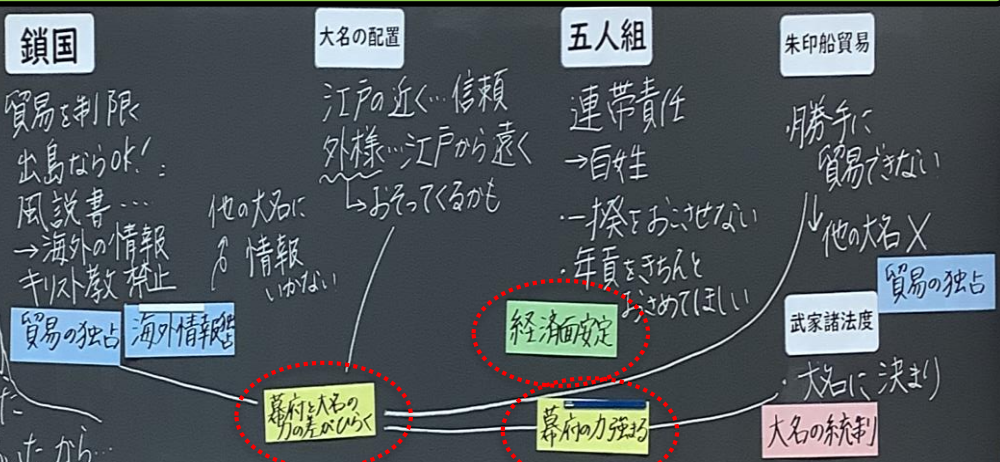 鎖国
貿易を制限
出島ならOK!
風説書…
→海外の情報
キリスト教 禁止
他の大名に
情報
いかない
貿易の独占
海外情報独占
大名の配置
江戸の近く…信頼
外様…江戸から遠く
→おそってくるかも
幕府と大名の
力の差がひらく
五人組
連帯責任
→百姓
・一揆をおこさせない
・年貢をきちんと
おさめてほしい
経済面安定
幕府の力強まる
朱印船貿易
・勝手に
貿易できない
↓他の大名×
貿易の独占
武家諸法度
・大名に決まり
大名の統制